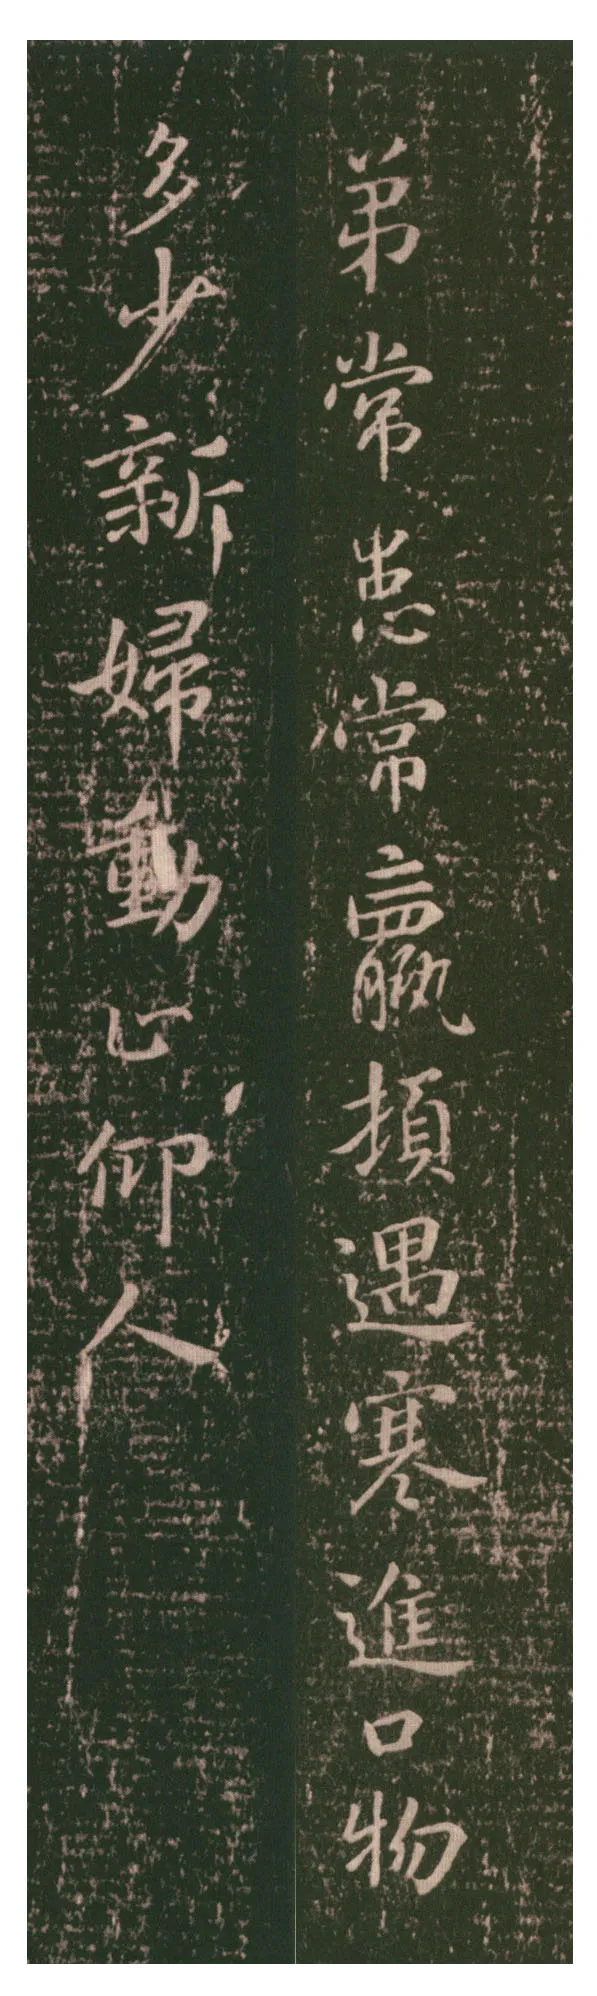 弟常患常羸頓遇寒進口物
多少新婦動止仰人